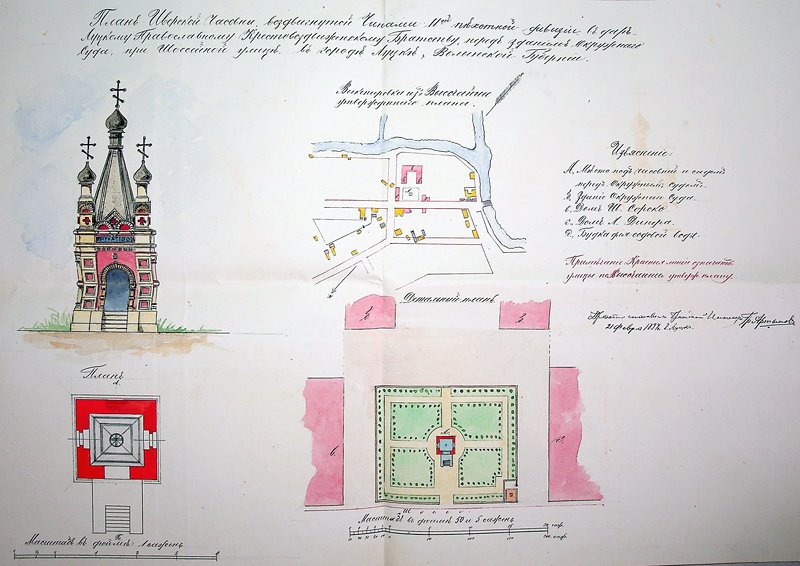 Планъ Иверской Часовни, воздвигнутой Чинами 11ой пѣхотной дивизіи въ даръ
Луцкому Православному Крестовоздвиженскому Братству, передъ зданіемъ Окружнаго
Суда, при Шоссейной улицѣ, въ городѣ Луцкѣ, Волынской Губерніи.
Выкопировка изъ Высочайше
утвержденнаго плана.
Изъясненіе:
А. Мѣсто подъ часовней и садомъ
передъ Окружнымъ судомъ.
б. Зданіе Окружн. Суда.
в. Домъ Ш. Сорокі
г. Домъ Л. Динера.
д. Будка для содовой воды.
Примѣчаніе: Красныя линіи означаютъ
улицы по Высочайше утвержд. плану.
21 Февр. 1892 г. Луцкъ.
Детальный планъ
Планъ
А.
в.
г.
Масштабъ въ дюймѣ 1 сажень
Масштабъ въ дюймѣ 50 и 5 сажень